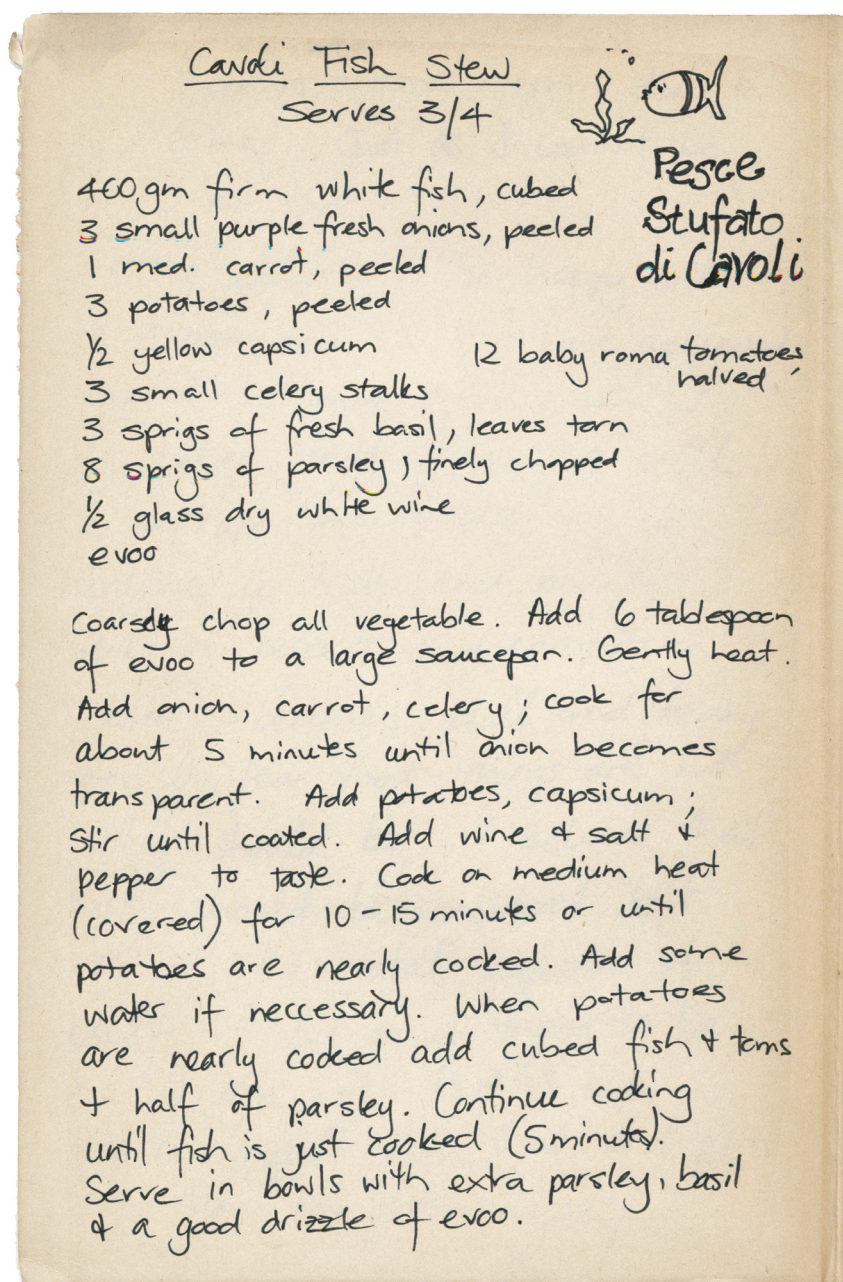 Cavoli Fish Stew
Serves 3/4
Pesce
Stufato
di Cavoli
400gm firm white fish, cubed
3 small purple fresh onions, peeled
1 med. carrot, peeled
3 potatoes, peeled
1/2 yellow capsicum
12 baby roma tomatoes,
halved
3 small celery stalks
3 sprigs of fresh basil, leaves torn
8 sprigs of parsley, finely chopped
1/2 glass dry white wine
evoo
Coarsely chop all vegetable. Add 6 tablespoon
of evoo to a large saucepan. Gently heat.
Add onion, carrot, celery; cook for
about 5 minutes until onion becomes
transparent. Add potatoes, capsicum;
stir until coated. Add wine & salt &
pepper to taste. Cook on medium heat
(covered) for 10-15 minutes or until
potatoes are nearly cooked. Add some
water if neccessary. When potatoes
are nearly cooked add cubed fish & toms
+ half of parsley. Continue cooking
until fish is just cooked (5 minutes).
Serve in bowls with extra parsley, basil
& a good drizzle of evoo.